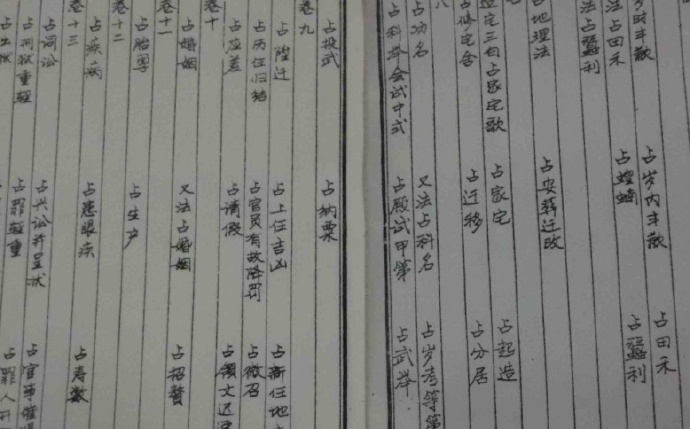 岁时丰歉 占岁内丰歉 占田禾
法占田禾 占蝗蝻 占蚕利
法占蚕利
占地理法 占安葬迁改
造宅三白占家宅歌 占家宅 占起造
占修宅舍 占迁移 占分居
八
占功名 又法占科名 占岁考等第
占科举会试中式 占殿试甲第 占武举
占投武 占纳粟
卷九
占陞迁 占上任吉凶 占新任地
占历任归结 占官员有故降罚 占徵召
占应差 占请假
卷十
占婚姻 又法占婚姻 占招赘
卷十一
占胎孕 占生产
卷十二
占疾病 占患眼疾 占寿数
卷十三
占词讼 占兴讼并呈状 占官事催
占刑狱重轻 占罪轻重 占罪人